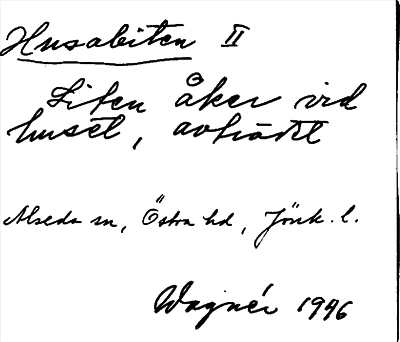 Husabiten II
Liten åker vid
huset, avträdt
Alseda sn, Östra hd, Jönk. l.
Wagnér 1946